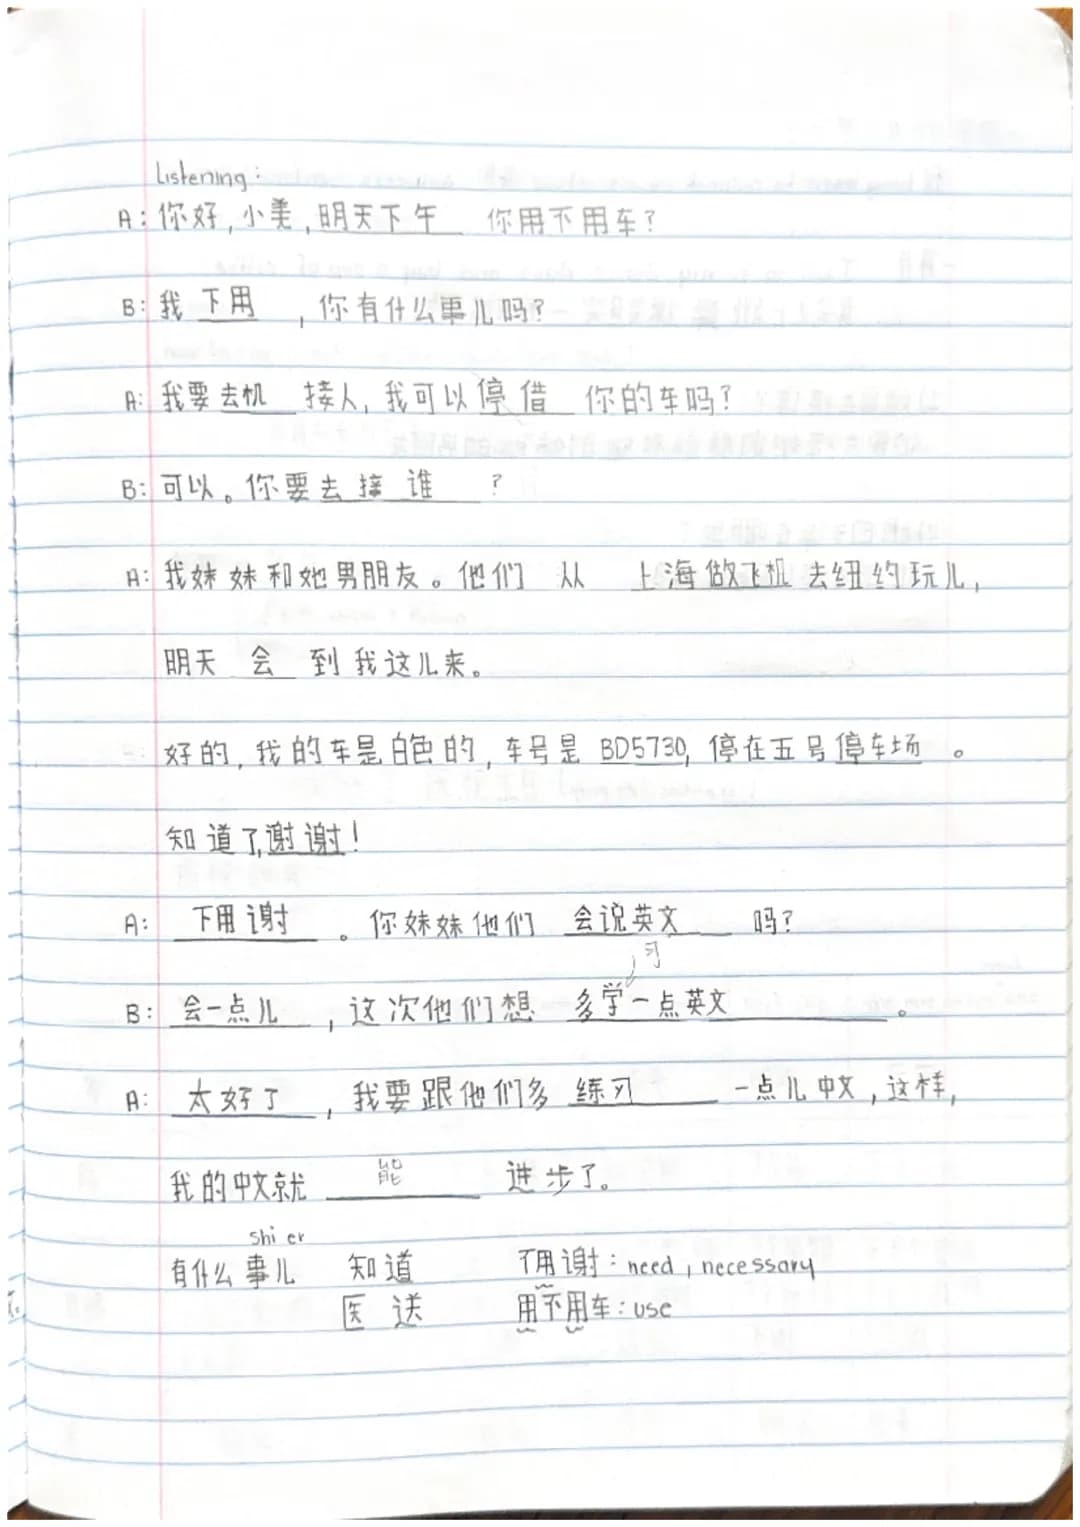 Listening:
A: 你好,小美,明天下午 你用不用车?
B: 我 下用 ,你有什么事儿吗?
A: 我要去机 接人,我可以停借 你的车吗?
B: 可以。你要去接 谁 ?
A: 我妹妹和她男朋友。他们 从 上海做飞机去纽约玩儿,
明天 会 到我这儿来。
B: 好的,我的车是白色的,车号是 BD5730, 停在五号停车场 。
知道了,谢谢!
A: 下用谢 。你妹妹他们 会说英文 吗?
习
B: 会一点儿 ,这次他们想 多学一点英文 。
A: 太好了 ,我要跟他们多 练习 一点儿中文,这样,
我的中文就 能 进步了。
shi er
有什么事儿 知道 不用谢: need, necessary
医 送 用不用车: use